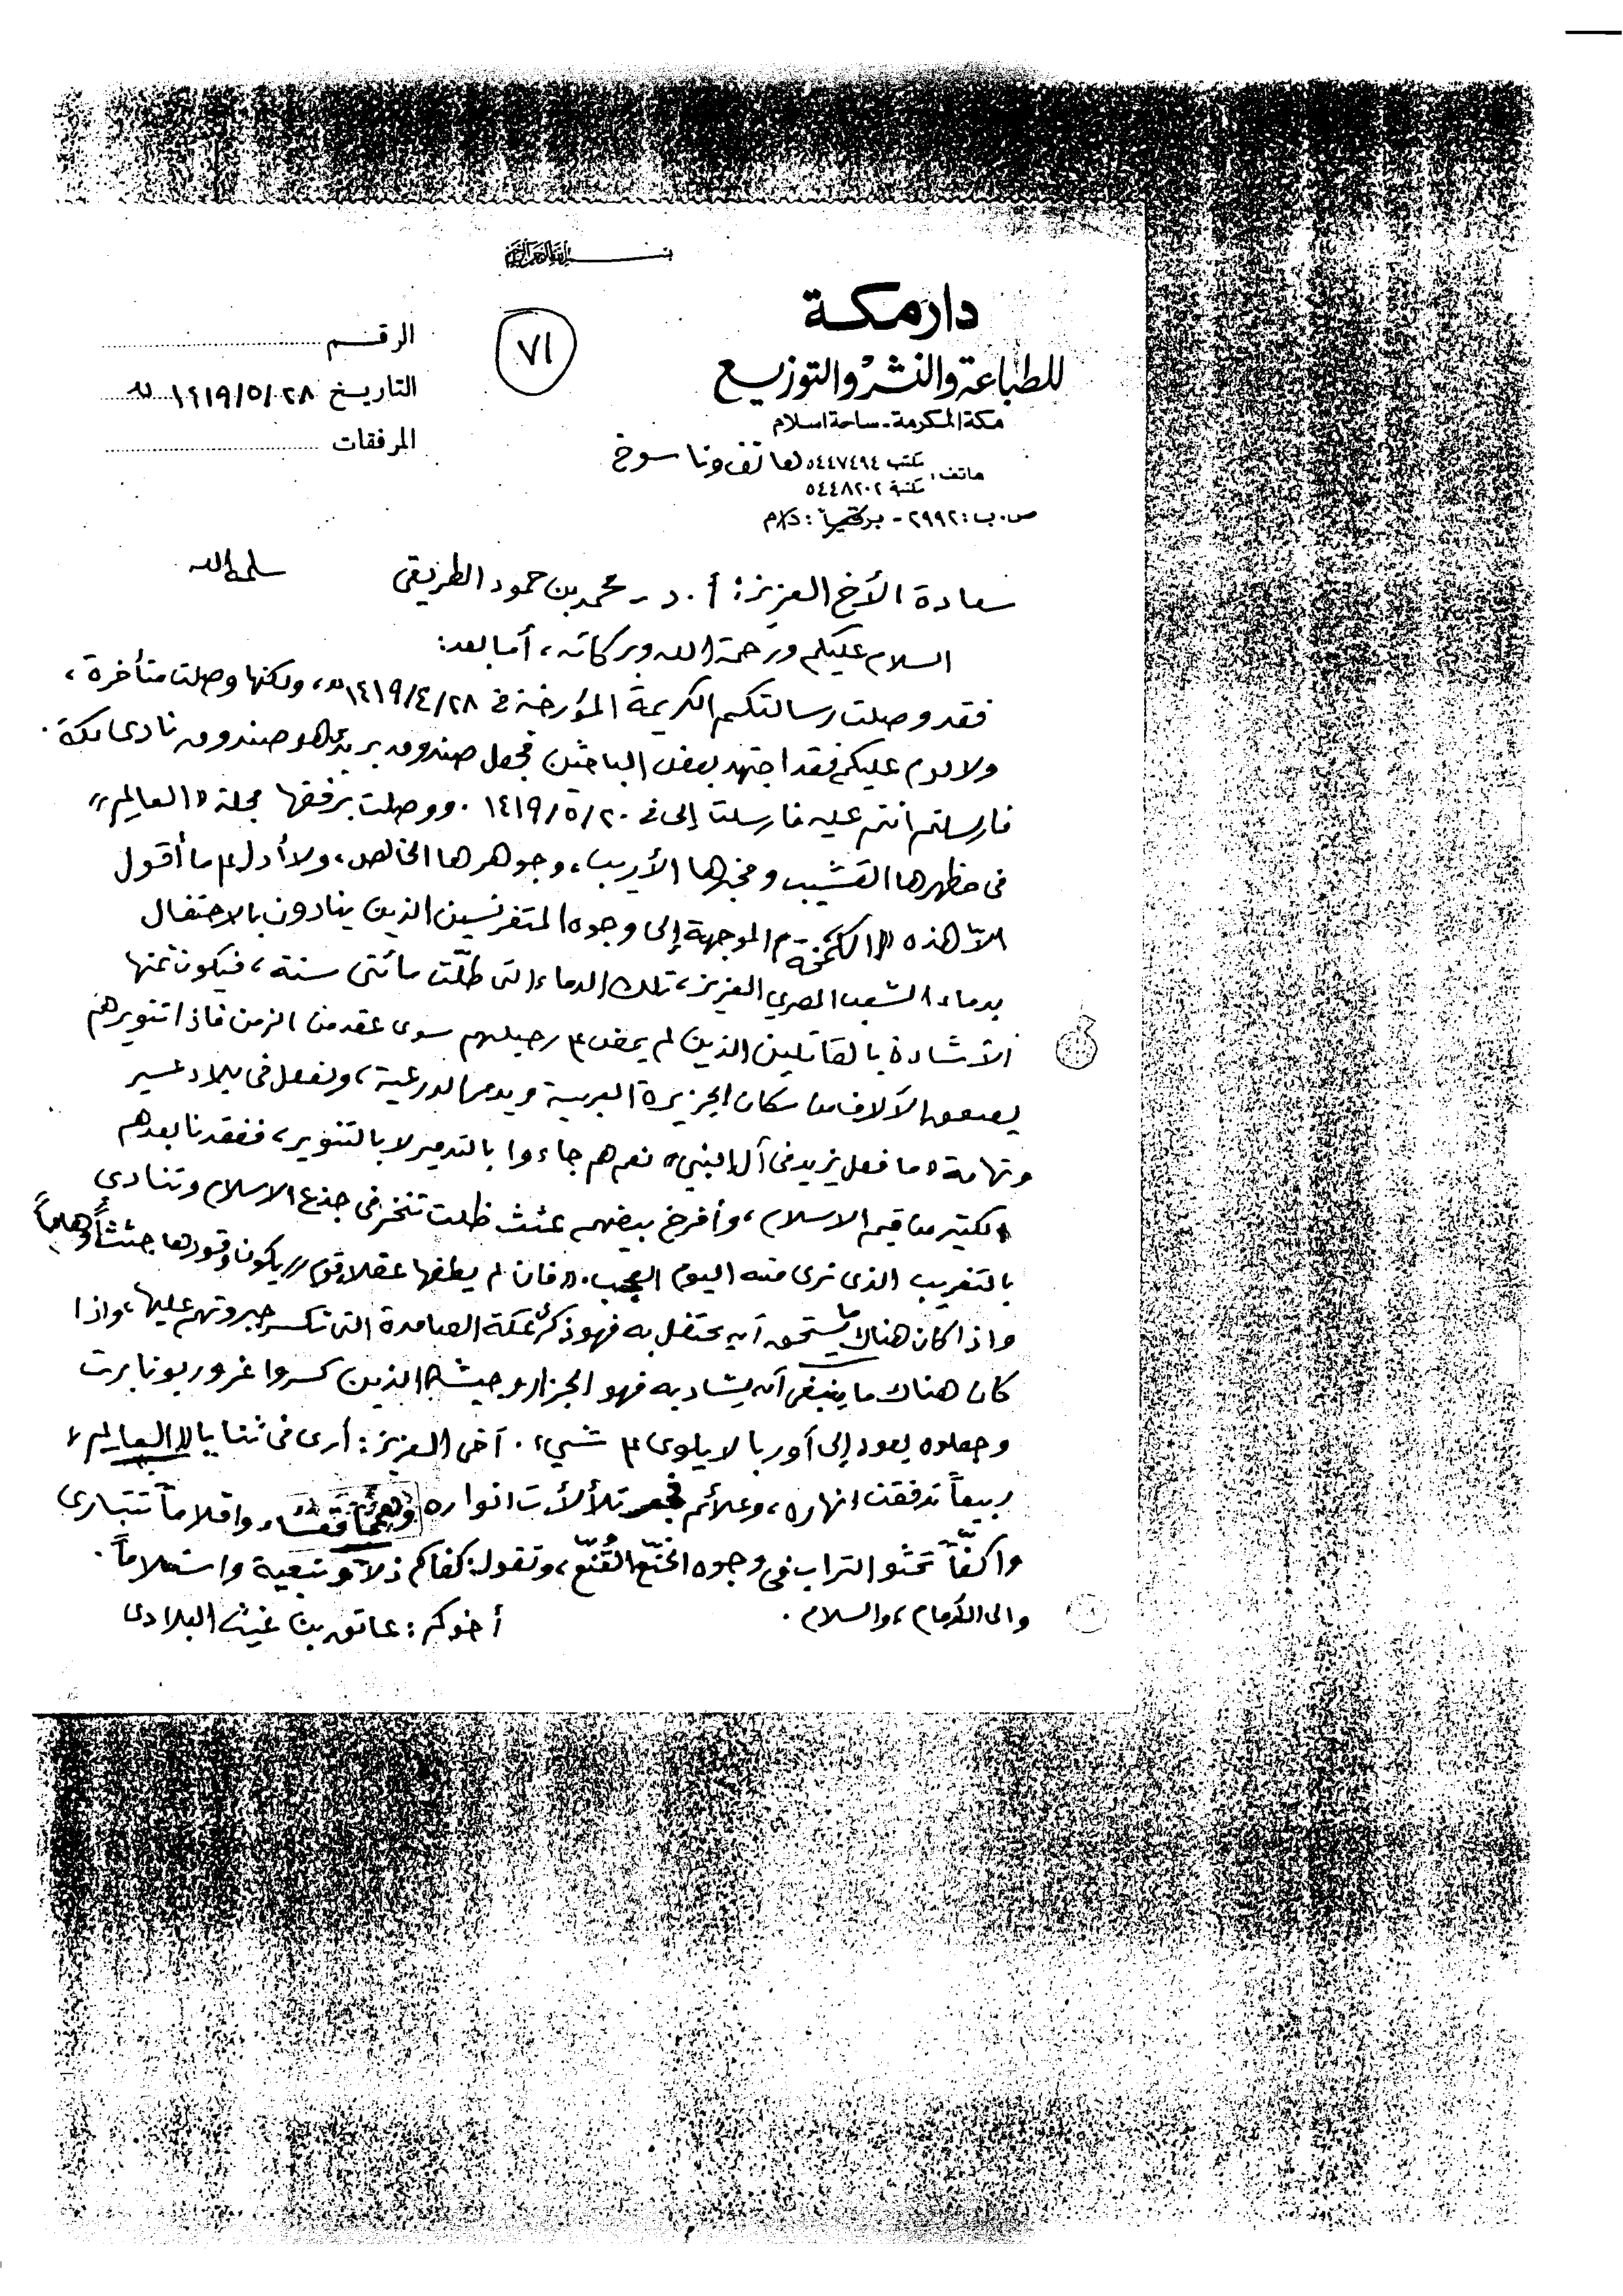 بسم الله الرحمن الرحيم
دار مكة
للطباعة والنشر والتوزيع
مكة المكرمة - ساحة اسلام
هاتف: مكتب ٥٤٤٧٤٩٤ هاتف وناسوخ
مكتبة ٥٤٤٨٢٠٢
ص.ب: ٢٩٩٢ - برقياً: دلام
الرقم
التاريخ ١٤١٩/٥/٢٨ هـ
المرفقات
٧١
سعادة الأخ العزيز: أ.د - محمد بن حمود الطريقي سلمه الله
السلام عليكم ورحمة الله وبركاته، أما بعد:
فقد وصلت رسالتكم الكريمة المؤرخة في ١٤١٩/٤/٢٨ هـ، ولكنها وصلت متأخرة،
ولا لوم عليكم فقد اجتهد بعض الباحثين فجعل صندوق بريدي هو صندوق نادي مكة.
فارسلتم انتم عليه فارسلت إلى في ١٤١٩/٥/٢٠. ووصلت برفقها مجلة «العالم»
في مظهرها القشيب ومخبرها الأريب، وجوهرها الخالص، ولا أدل على ما أقول
الا هذه الموجهة إلى وجوه المتفرنسين الذين ينادون بالاحتفال
بدماء الشعب المصري العزيز، تلك الدماء التي طلّت مائتي سنة، فيكون ثمنها
الاشادة بالقاتلين الذين لم يمض على رحيلهم سوى عقد من الزمن فاذا تنويرهم
يصعق الآلاف من سكان الجزيرة العربية ويدمر الدرعية، ونفعل في بلاد عسير
وتهامة «ما فعل يزيد في آل النبي» نعم هم جاءوا بالتدمير لا بالتنوير، ففقدنا بعدهم
الكثير من قيم الاسلام، وأفرخ بيضهم عثث ظلت تنخر في جذع الاسلام وتنادي
بالتغريب الذي نرى منه اليوم العجب. «فان لم يطفها عقلاء قوم» يكون وقودها جثثاً وهاماً
واذا كان هناك ما يستحق أن يحتفل به فهو ذكرى عكة الصامدة التي تكسر جبروتهم عليها، واذا
كان هناك ما ينبغي أن يشاد به فهو الجزار وجيشه الذين كسروا غرور بونابرت
وجعلوه يعود إلى أوربا لا يلوي على شيء. أخي العزيز: أرى في ثنايا «العالم»
ربيعاً تدفقت انهاره، وعلائم فجر تلألأت انواره وهمماً قعساء، واقلاماً تتبارى
واكفّاً تحثو التراب في وجوه الخنّع القُنّع، وتقول: كفاكم ذلاً وتبعية واستلاماً.
والى الأمام، والسلام.
أخوكم: عاتق بن غيث البلادي